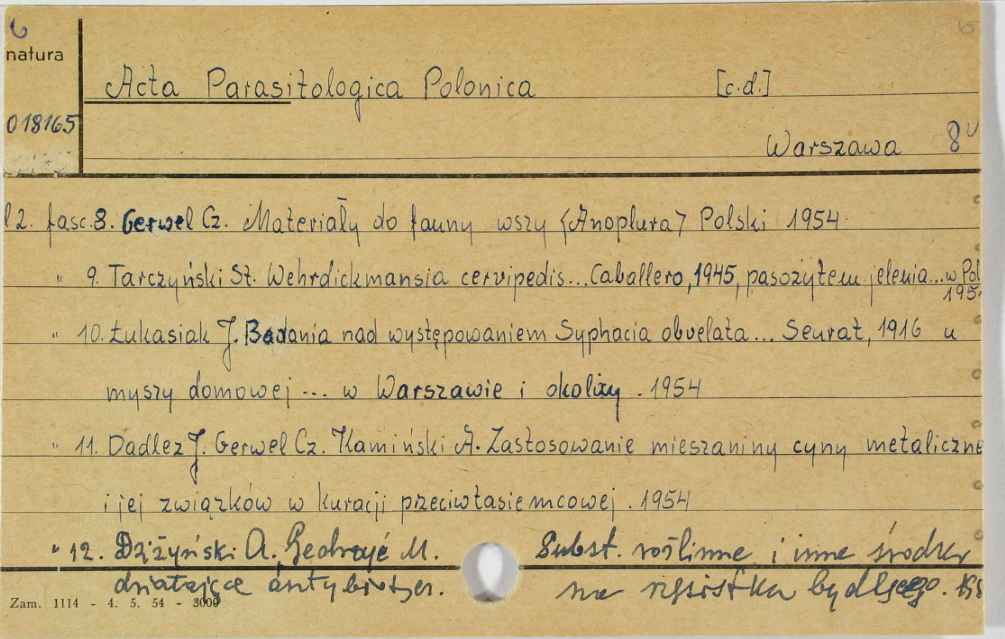 natura
Acta Parasitologica Polonica [c.d.]
018165
Warszawa 8°
2. fasc. 8. Gerwel Cz. Materiały do fauny wszy (Anoplura) Polski 1954.
" 9. Tarczyński St. Wehrdickmansia cervipedis... Caballero, 1945, pasożytem jelenia... w Pol
195
" 10. Łukasiak J. Badania nad występowaniem Syphacia obvelata... Seurat, 1916 u
myszy domowej ... w Warszawie i okolicy. 1954
" 11. Dadlez J. Gerwel Cz. Kamiński A. Zastosowanie mieszaniny cyny metaliczne
i jej związków w kuracji przeciwtasiemcowej. 1954
" 12. A. M. Subst. roślinne i inne środki
działające antybiotycz. na rzęsistka bydlęcego.
Zam. 1114 - 4. 5. 54 - 3000